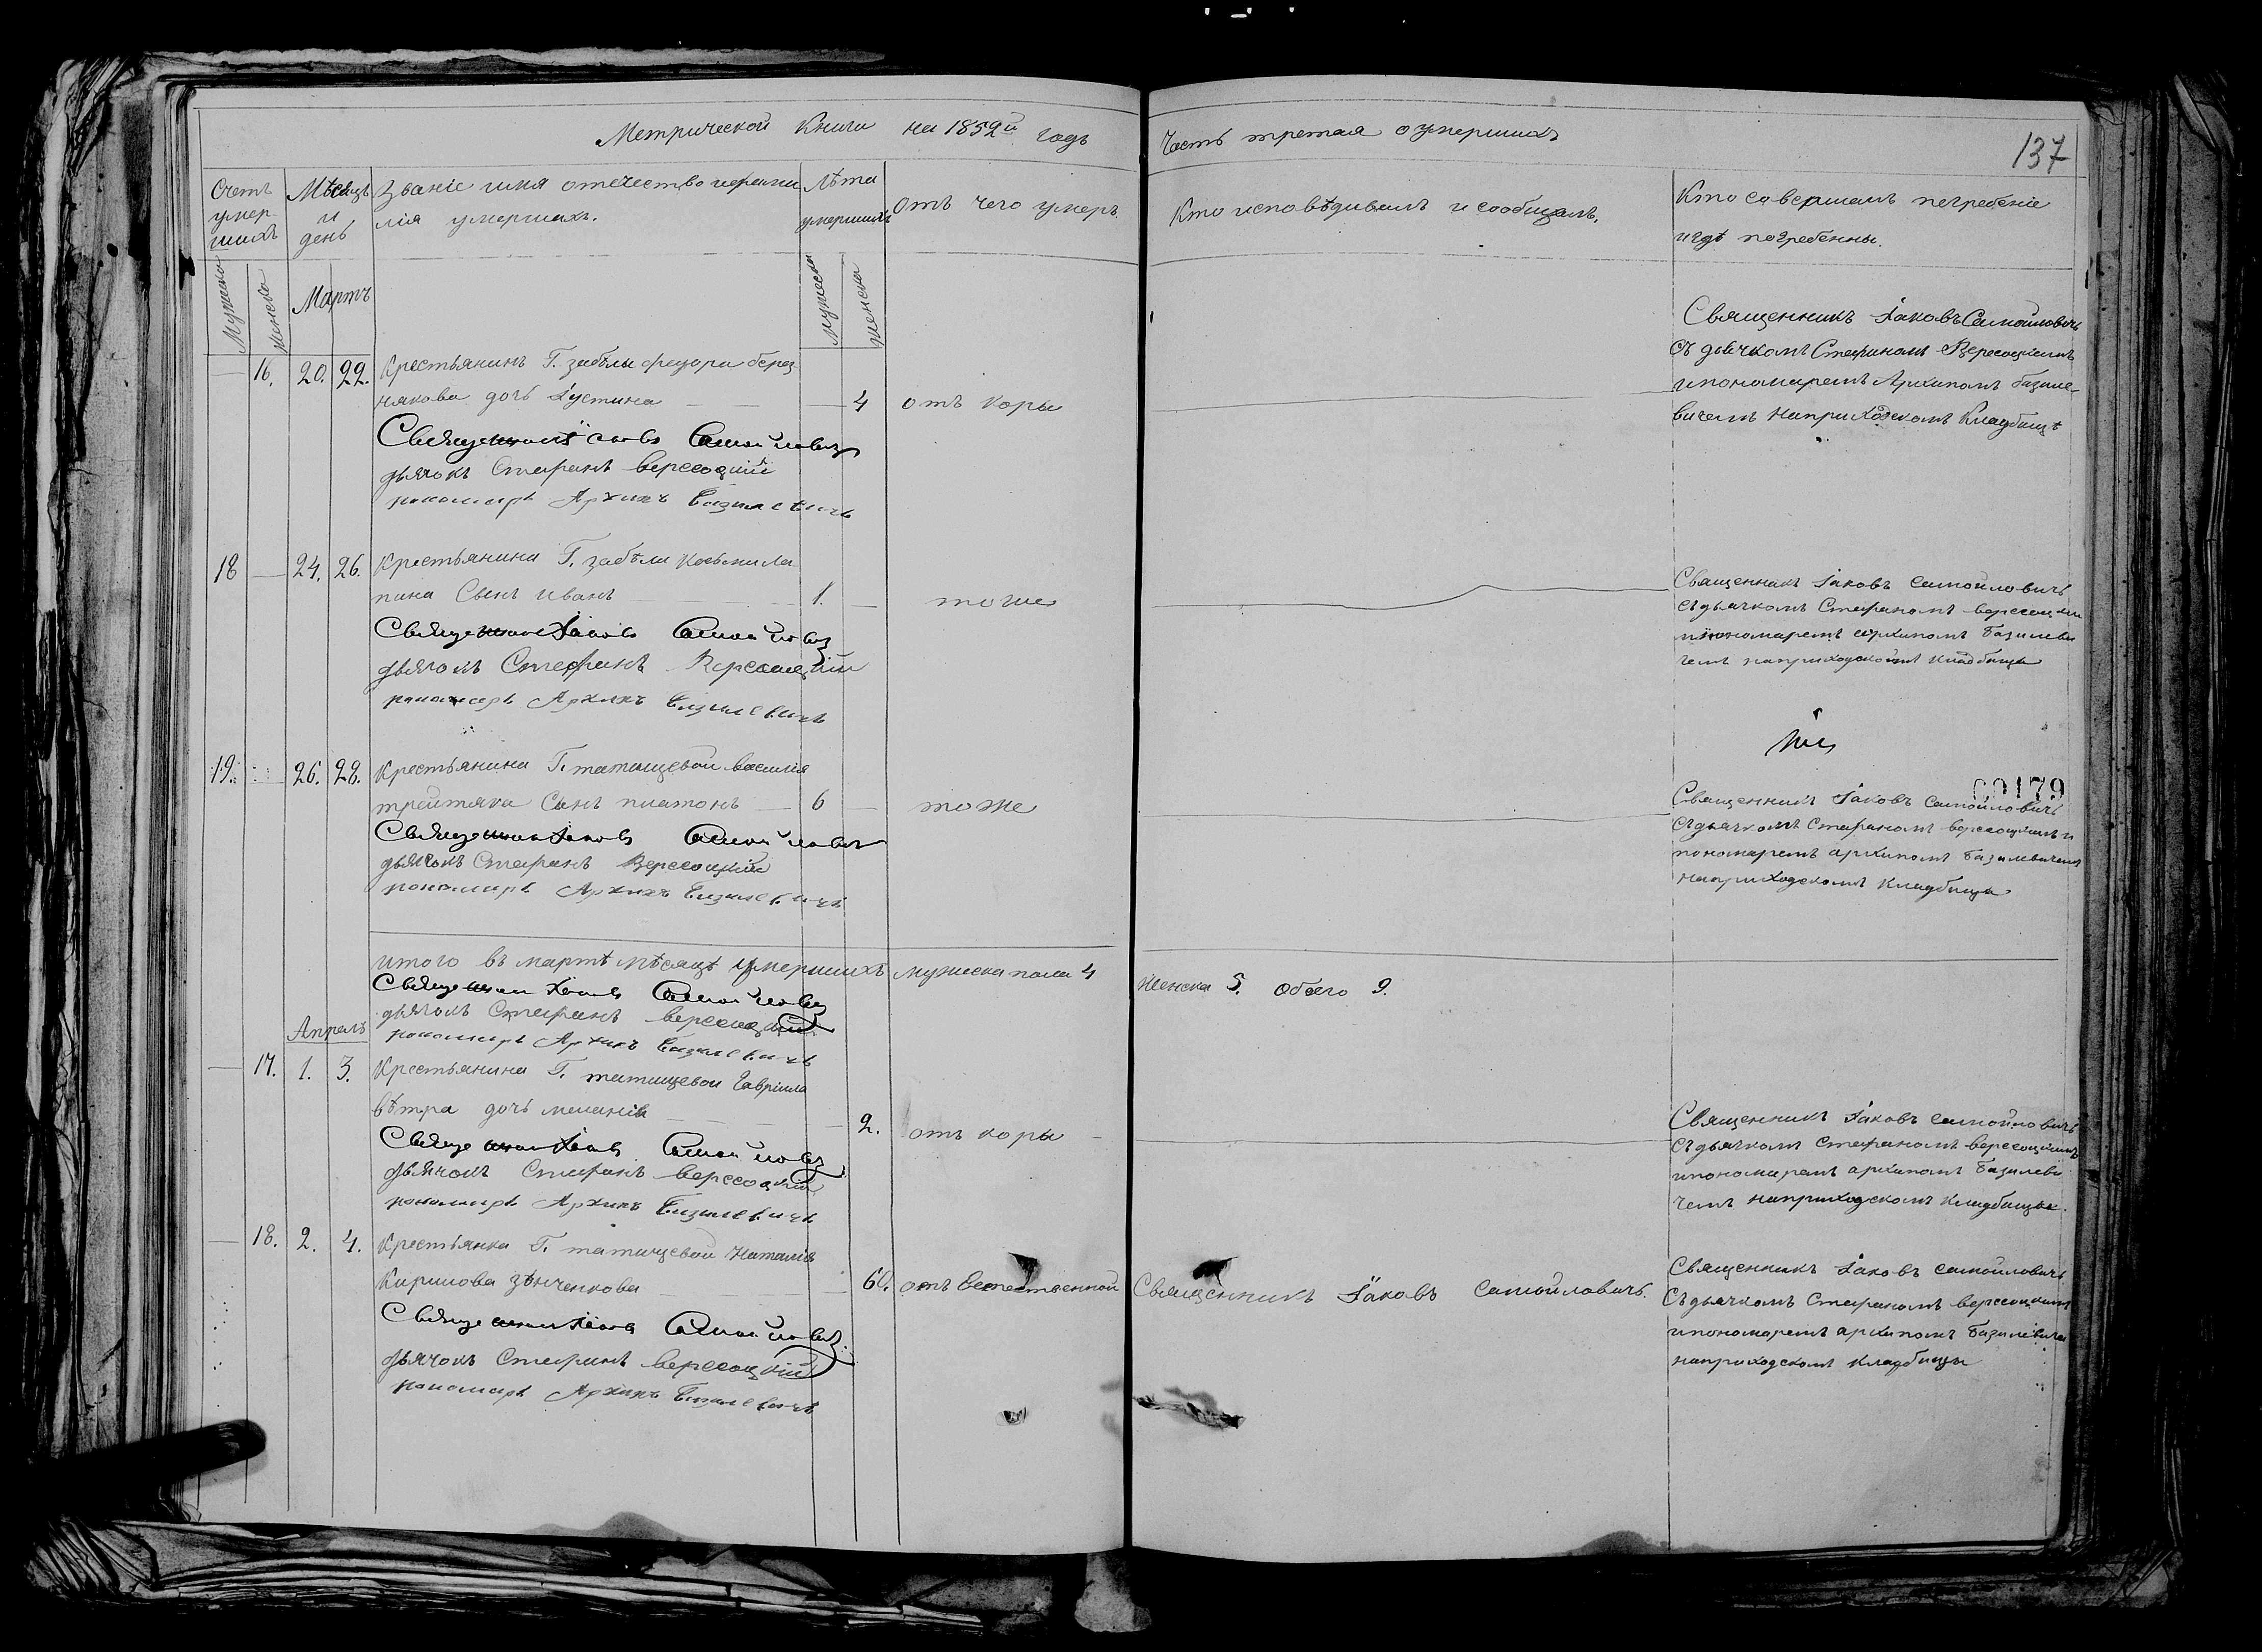 Метрической Книги на 1852й годъ
Часть третая о умершихъ
137
Счетъ умер-шихъ
Мѣсяцъ и день
Званіе имя отечество и фами
лія умершихъ.
Лѣта умершихъ
Отъ чего умеръ
Кто исповѣдивалъ и сообщалъ.
Кто совершалъ погребеніе
и гдѣ погребенны.
Мужеска
женска
Мартъ
мужеска
женска
16. 20. 22. Крестьянинъ Г. забѣлы федора берез
някова дочь Іустина 4 отъ коры
Священникъ Іаковъ Самойловичъ
дьячокъ Стефанъ Вересоцкій
пономарь Архипъ Базилевичъ
Священникъ Іаковъ Самойловичъ
съ дьячкомъ Стефаномъ Вересоцкимъ
и пономаремъ Архипомъ базиле-
вичемъ на приходскомъ Кладбищѣ
18 24. 26. Крестьянина Г. забѣли Косьми Ла
пина Сынъ иванъ 1. тоже
Священникъ Іаковъ Самойловичъ
дьячокъ Стефанъ Вересоцкій
пономарь Архипъ Базилевичъ
Священникъ Іаковъ Самойловичь
съ дьячкомъ Стефаномъ вересоцким
пономаремъ архипомъ базилеви
чемъ на приходскомъ кладбищи
00179
19. 26. 28. Крестьянина Г. татищевой василія
трейтяка Сынъ платонъ 6 тоже
Священникъ Іаковъ Самойловичъ
дьячокъ Стефанъ Вересоцкій
пономарь Архипъ Базилевичъ
Священникъ Іаковъ Самойловичь
съ дьячкомъ Стефаномъ вересоцкимъ и
пономаремъ архипомъ базилевичемъ
на приходскомъ кладбищи
итого въ мартѣ мѣсяцѣ умершихъ мужеска пола 4
женска 5. обоего 9.
Священникъ Іаковъ Самойловичъ
дьячокъ Стефанъ вересоцкий
пономарь Архипъ Базилевичъ
Апрель
17. 1. 3. Крестьянина Г. татищевои Гавріила
вѣтра дочь меланія 2. отъ коры
Священникъ Іаковъ Самойловичъ
дьячокъ Стефанъ вересоцкій
пономарь Архипъ Базилевичъ
Священникъ Іаковъ Самойловичь
съ дьячкомъ Стефаномъ вересоцкимъ
и пономаремъ архипомъ базилеви
чемъ на приходскомъ кладбищи.
18. 2. 4. Крестьянка Г. татищевой Наталія
Кирилова зѣнченкова 60. отъ Естественной
Священникъ Іаковъ Самойловичь.
Священникъ Іаковъ Самойловичъ
дьячокъ Стефанъ вересоцкій
пономарь Архипъ Базилевичъ
Священникъ Іаковъ самойловичь
съ дьячкомъ Стефаномъ вересоцким
и пономаремъ архипомъ базилевиче
на приходскомъ кладбищи